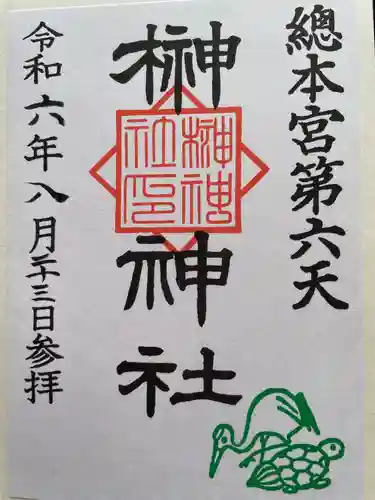 總本宮第六天
榊神社
榊神
社印
令和六年八月二十三日参拝